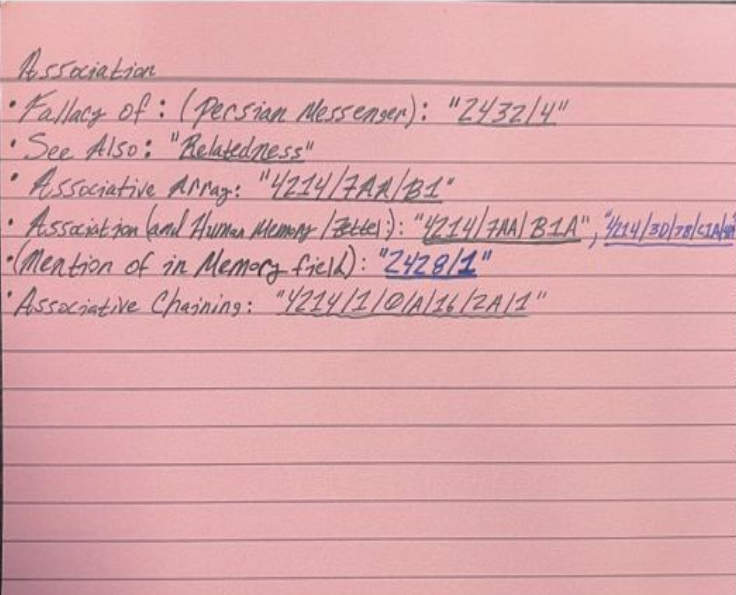 Association
• Fallacy of: (Persian Messenger): "2432/4"
• See Also: "Relatedness"
• Associative Array: "4214/7AA/B1"
• Association (and Human Memory / Zettel): "4214/7AA/B1A",
• (Mention of in Memory field): "2428/1"
• Associative Chaining: "4214/1/0/A/16/2A/1"